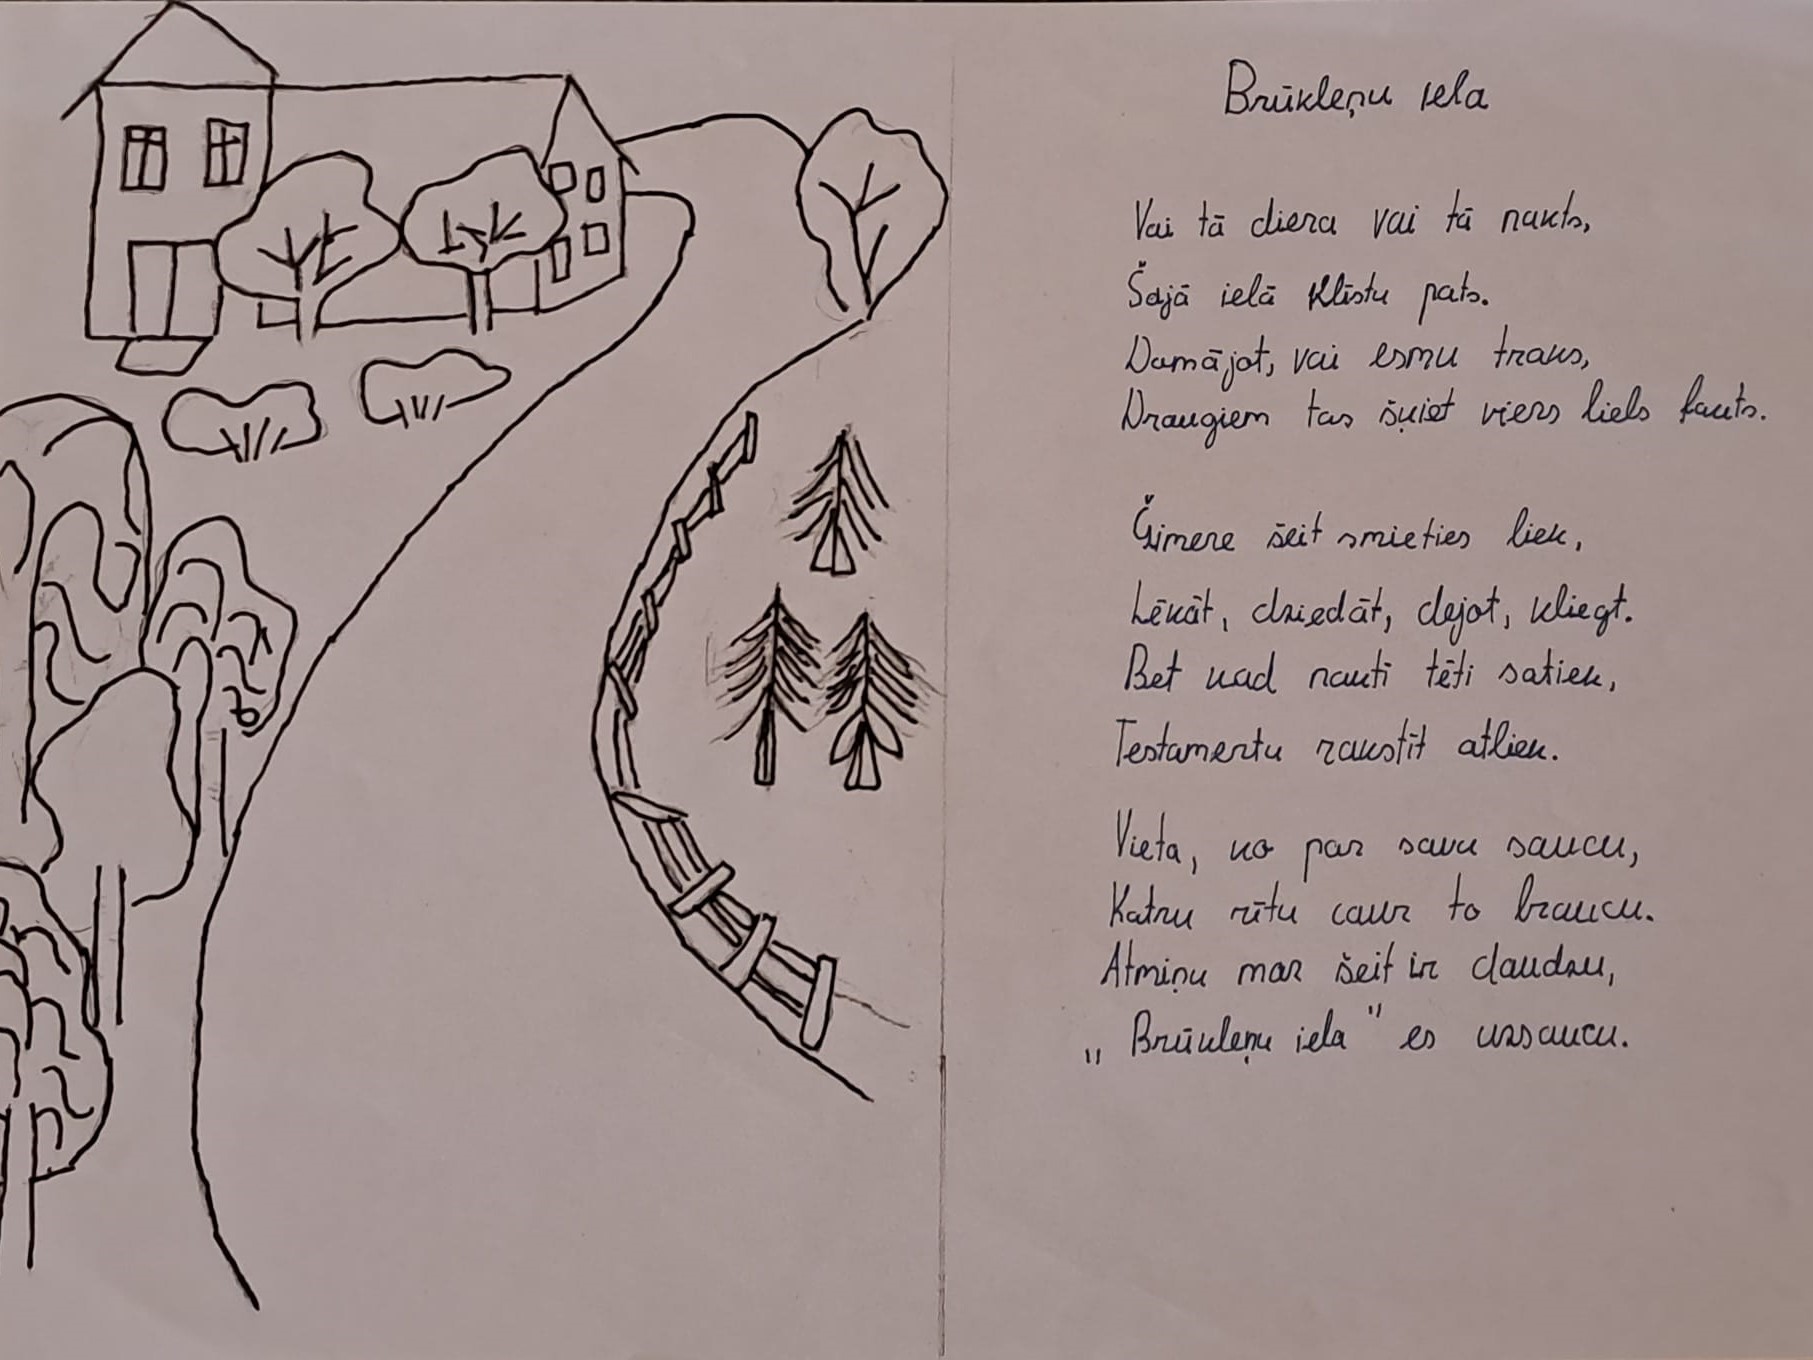 Brūkleņu iela
Vai tā diena vai tā nakts,
Šajā ielā klīstu pats.
Domājot, vai esmu traks,
Draugiem tas šķiet viens liels fakts.
Ģimene šeit smieties liek,
Lēkāt, dziedāt, dejot, kliegt.
Bet kad naktī tēti satiek,
Testamentu rakstīt atliek.
Vieta, ko par savu saucu,
Katru rītu caur to braucu.
Atmiņu man šeit ir daudzu,
„Brūkleņu iela" es uzsaucu.